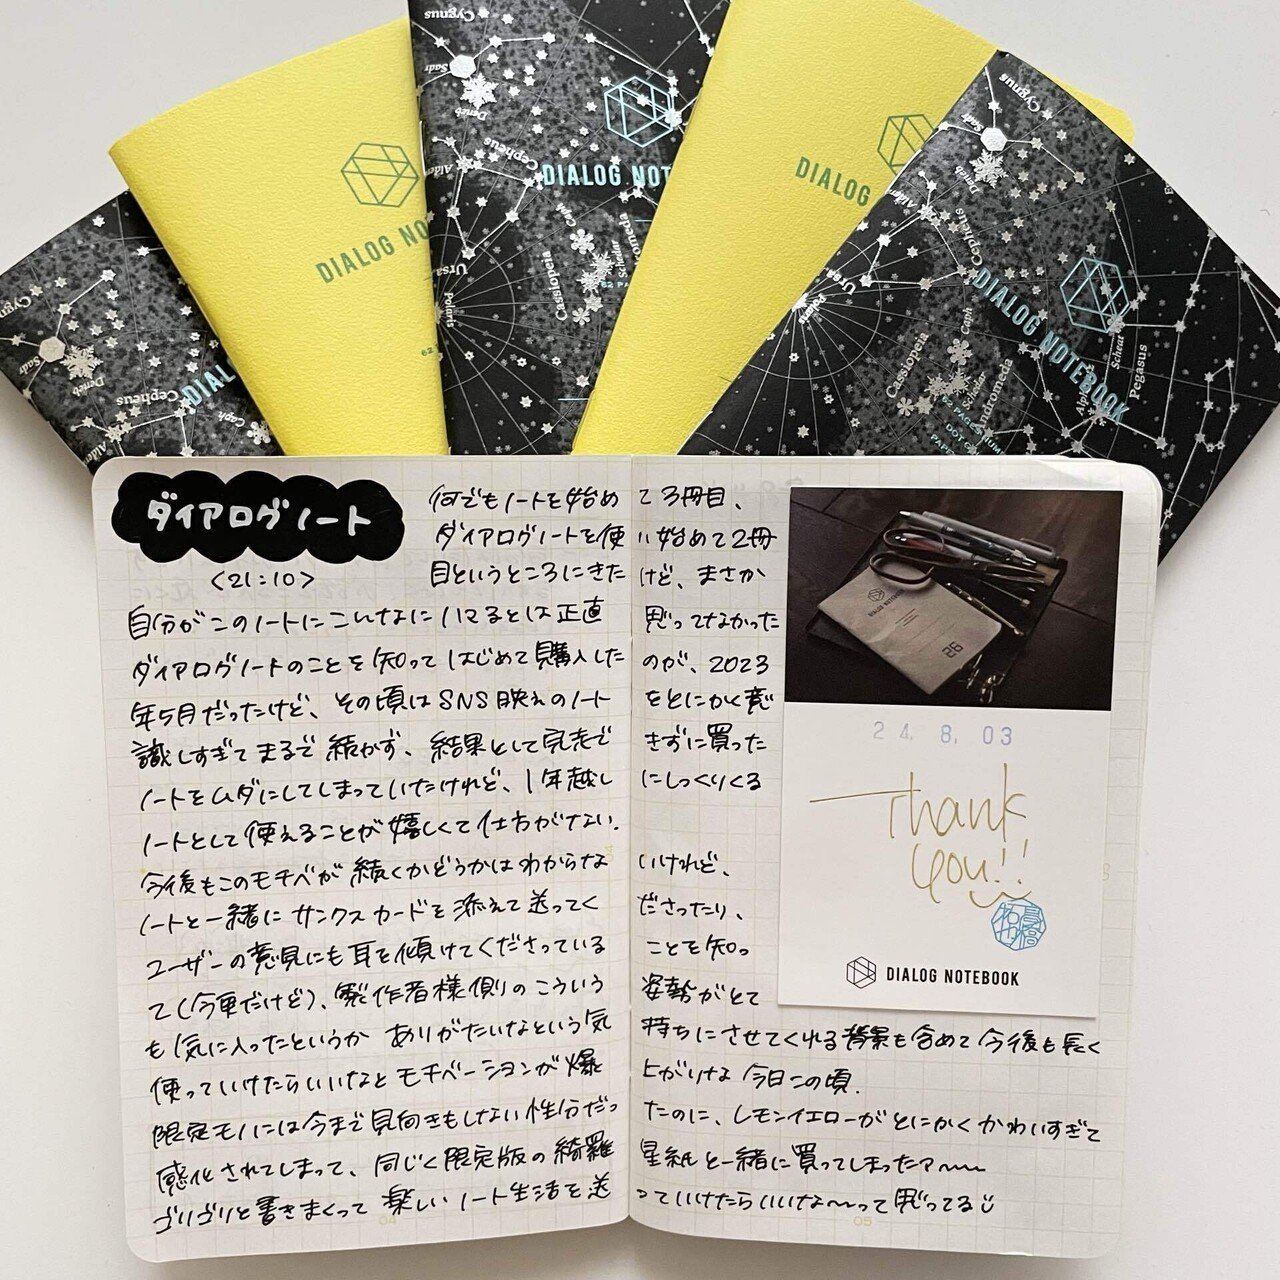 Cygnus
Sadr
Deneb
Cepheus
Caph
DIAL
DIALOG NO
62
Cygnus
Sadr
Deneb
Cepheus
DIALOG NOT
Ursa
Polaris
Cassiopeia
Caph
62 PA
DIALOG
Cygnus
Sadr
Deneb
Cepheus
Ursa
Polaris
Caph
Cassiopeia
Andromeda
Scheat
Pegasus
DIALOG NOTEBOOK
ダイアログノート
<21:10>
何でもノートを始めて3冊目、
ダイアログノートを使い始めて2冊
目というところにきたけど、まさか
自分がこのノートにこんなにハマるとは正直思ってなかった
ダイアログノートのことを知ってはじめて購入したのが、2023
年5月だったけど、その頃はSNS映えのノートをとにかく意
識しすぎてまるで続かず、結果として完走できずに買った
ノートをムダにしてしまっていたけれど、1年越しにしっくりくる
ノートとして使えることが嬉しくて仕方がない.
今後もこのモチベが続くかどうかはわからないけれど、
ノートと一緒にサンクスカードを添えて送ってくださったり、
ユーザーの意見にも耳を傾けてくださっていることを知っ
て(今更だけど)、製作者様側のこういう姿勢がとて
も気に入ったというかありがたいなという気持ちにさせてくれる背景も含めて今後も長く
使っていけたらいいなとモチベーションが爆上がりな今日この頃.
限定モノには今まで見向きもしない性分だったのに、レモンイエローがとにかくかわいすぎて
感化されてしまって、同じく限定版の綺羅星紙と一緒に買ってしまったァ〜〜
ゴリゴリと書きまくって楽しいノート生活を送っていけたらいいな〜って思ってる
DIALOG NOTEBOOK
26
24. 8. 03
Thank
you!!
DIALOG NOTEBOOK
04
05